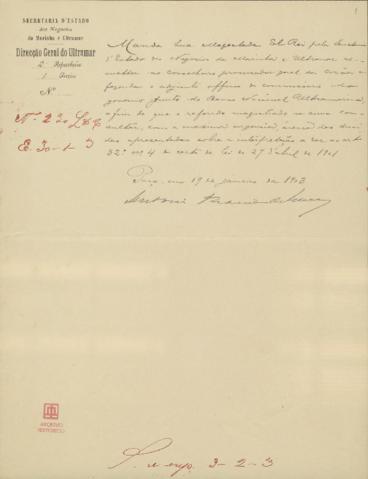 SECRETARIA D'ESTADO
dos Negocios
da Marinha e Ultramar
Direcção Geral do Ultramar
2ª Repartição
1ª Secção
Nº
Nº 22
E. 30-1-3
Manda Sua Magestade El-Rei pela Secretaria
d'Estado dos Negocios da Marinha e Ultramar
ao conselheiro procurador geral da corôa e
fazenda o officio do commissario do
governo junto do Banco Nacional Ultramarino,
a fim de que o referido magistrado
com a maxima urgencia, ácerca das
apresentadas sobre a interpretação a dar ao art.
32º nº 4 da carta de lei de 27 d'abril de 1901.
Paço, em 19 de janeiro de 1903
Antonio
ARQUIVO
HISTORICO
3-2-3